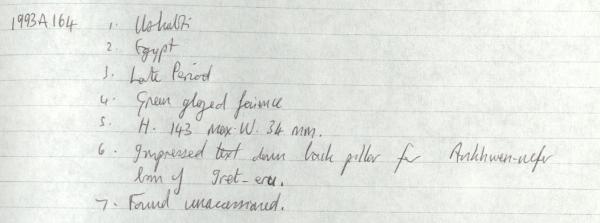 1993A164 1. Ushabti
2. Egypt
3. Late Period
4. Green glazed faience
5. H. 143 max. W. 34 mm.
6. Impressed text down back pillar for Ankhwen-nefer
born of Iret-eru.
7. Found unaccessioned.